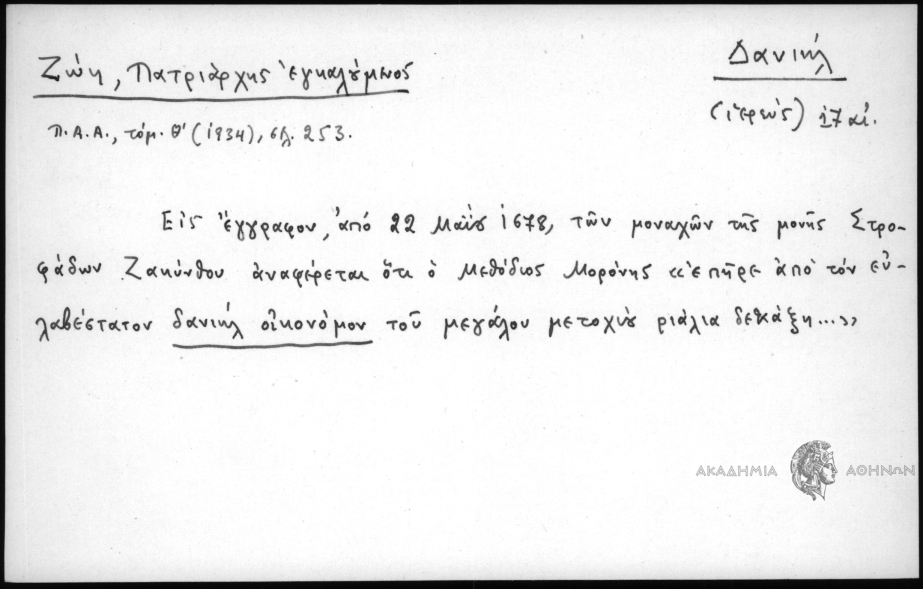 Ζώη, Πατριάρχης ἐγκαλούμενος
Δανιήλ
(ἱερεὺς) 17 αἰ.
Π.Α.Α., τόμ. Θ' (1934), σελ. 253.
Εἰς ἔγγραφον, ἀπό 22 Μαΐου 1678, τῶν μοναχῶν τῆς μονῆς Στρο-
φάδων Ζακύνθου ἀναφέρεται ὅτι ὁ Μεθόδιος Μορόνης «ἐπῆρε ἀπὸ τόν εὐ-
λαβέστατον δανιήλ οἰκονόμον τοῦ μεγάλου μετοχιοῦ ριάλια δεκάξη...»
ΑΚΑΔΗΜΙΑ ΑΘΗΝΩΝ